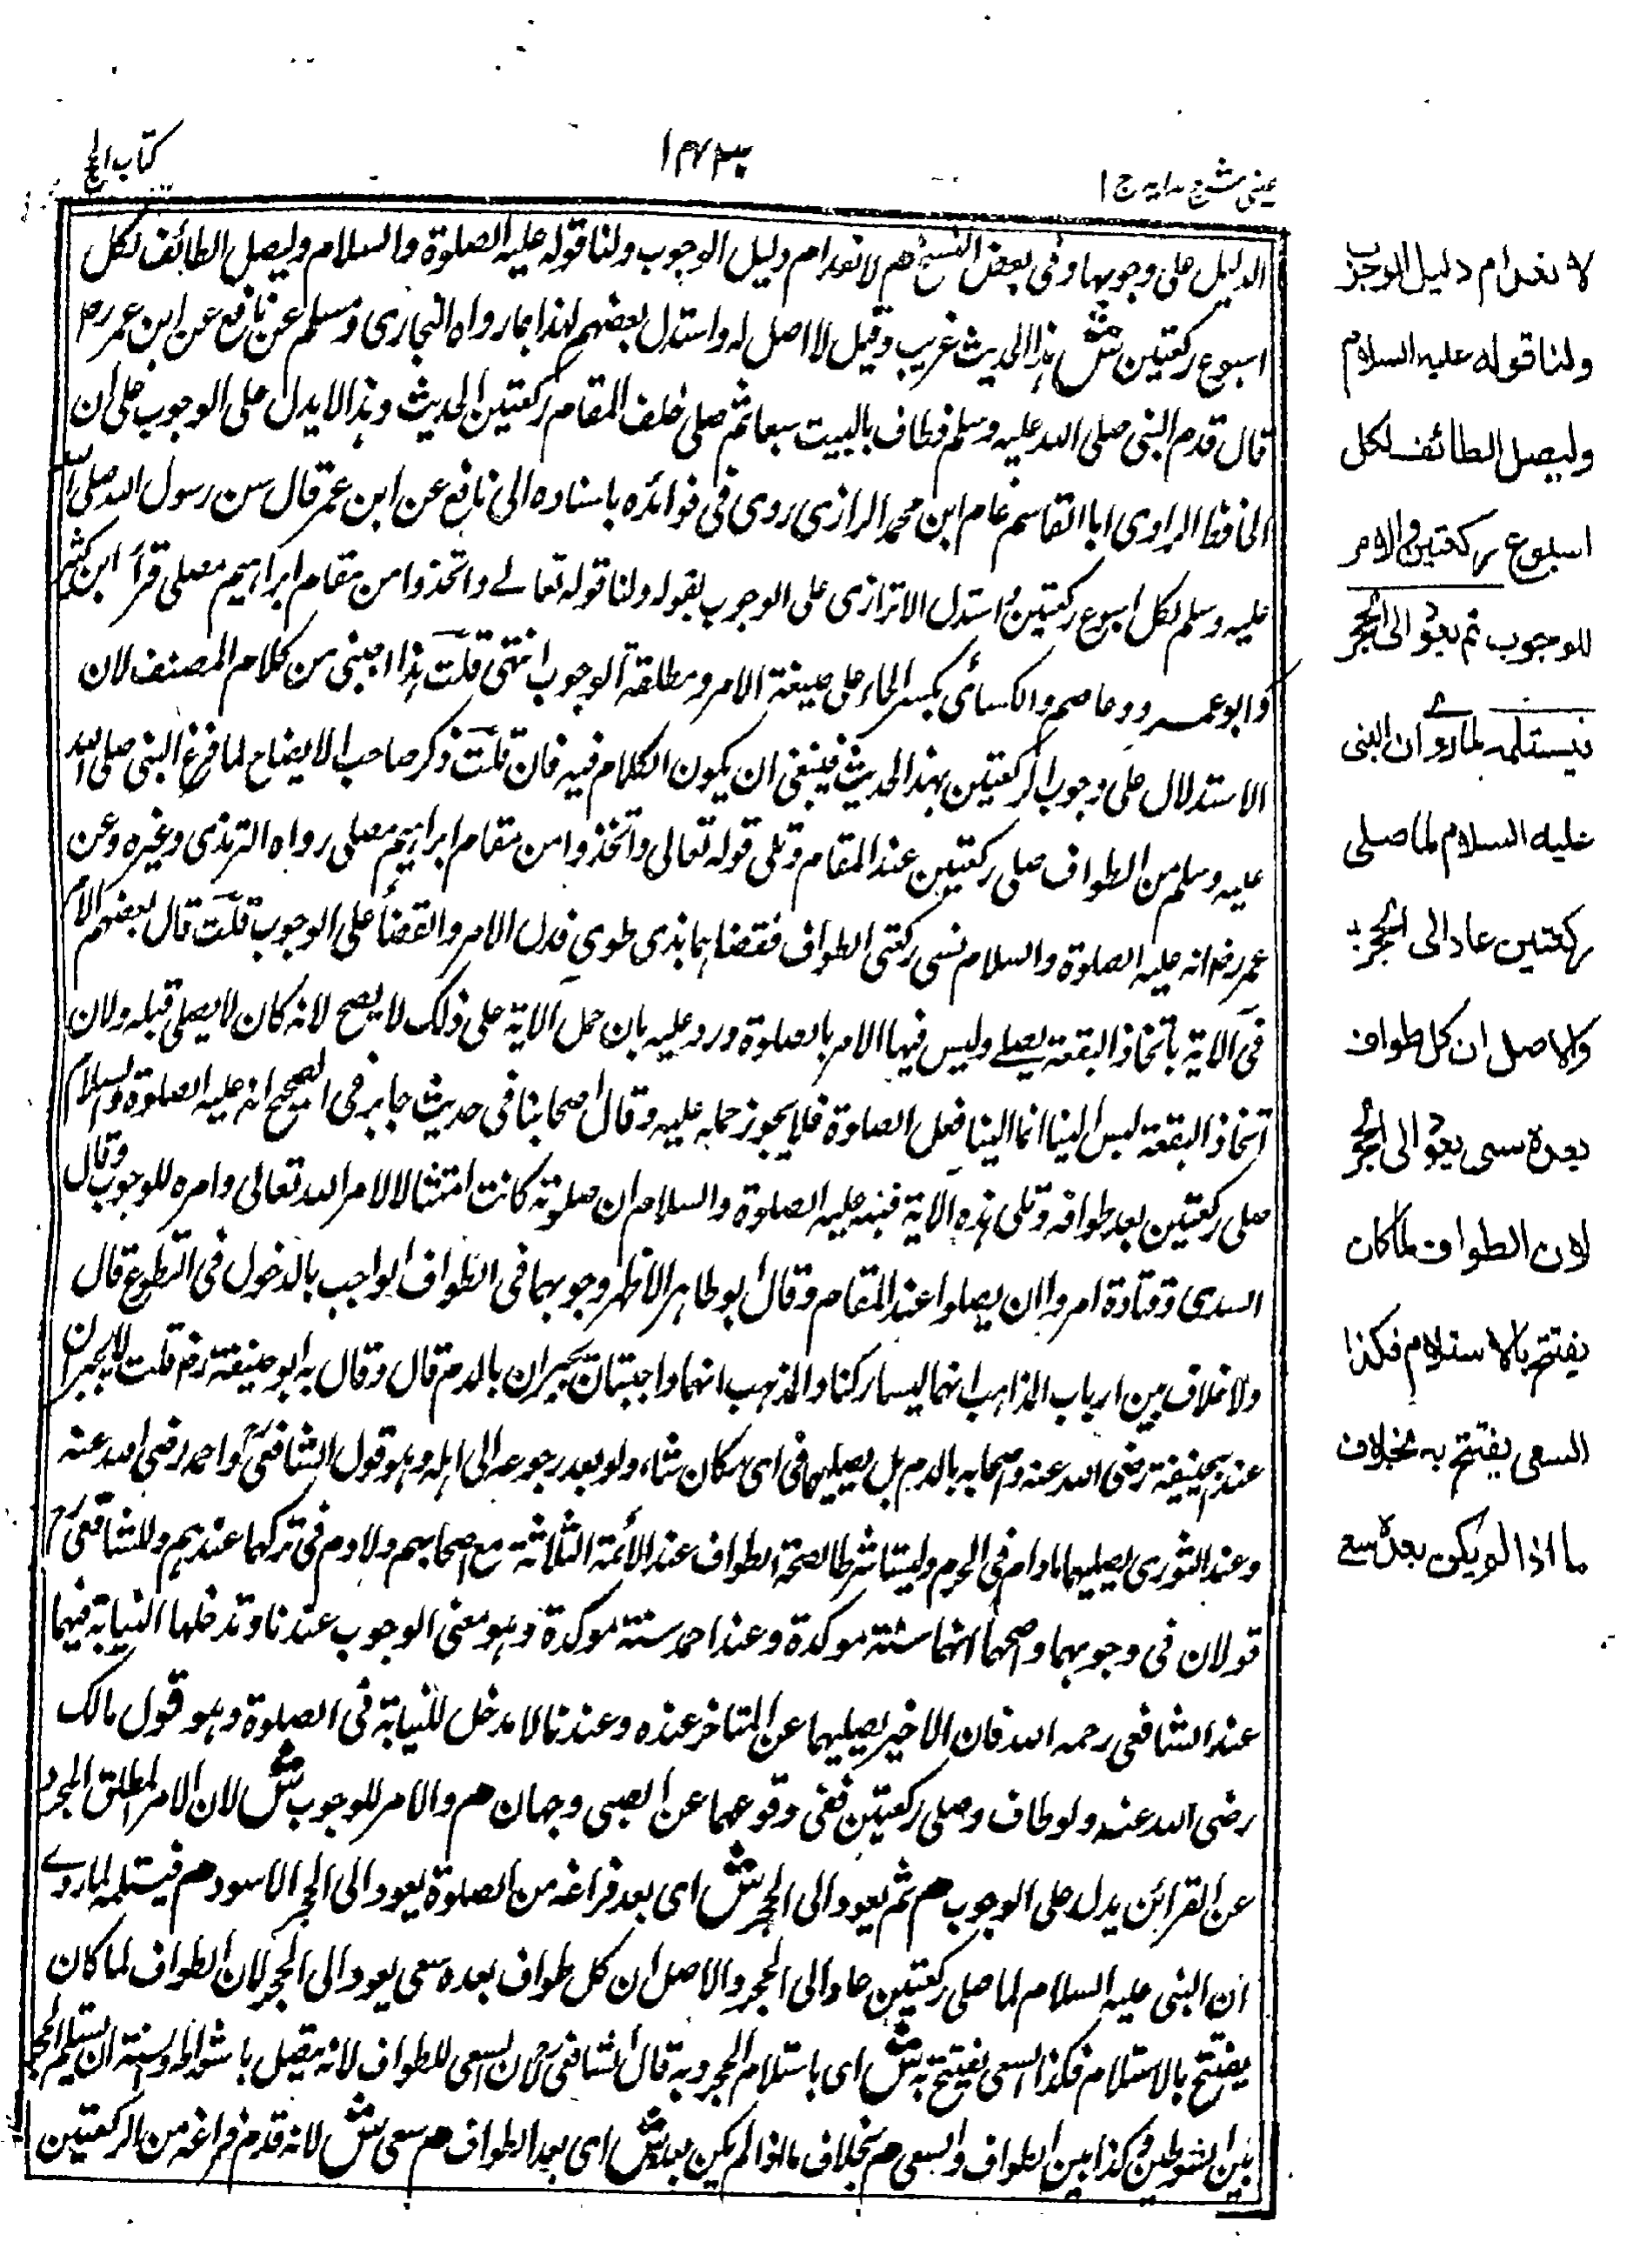 عینی شرح ہدایہ ج ا
۱۴۷۳
کتاب الحج
الدلیل علی وجوبها وفی بعض النسخ هم لانعدام دلیل الوجوب ولنا قوله علیه الصلوة والسلام ولیصل الطائف لکل
اسبوع رکعتین ش هذا الحدیث غریب وقیل لا اصل له واستدل بعضهم لهذا بما رواه البخاری ومسلم عن نافع عن ابن عمر رض
قال قدم النبی صلی الله علیه وسلم فطاف بالبیت سبعا ثم صلی خلف المقام رکعتین الحدیث وهذا لا یدل علی الوجوب علی ان
الحافظ الراوی ابا القاسم تمام ابن محمد الرازی روی فی فوائده باسناده الی نافع عن ابن عمر قال سن رسول الله صلی الله
علیه وسلم لکل اسبوع رکعتین واستدل الاترازی علی الوجوب بقوله ولنا قوله تعالے واتخذوا من مقام ابراهیم مصلی قرأ ابن کثیر
وابو عمرو وعاصم والکسائی بکسر الخاء علی صیغة الامر ومطلقه الوجوب انتهی قلت هذا اجنبی من کلام المصنف لان
الاستدلال علی وجوب الرکعتین بهذا الحدیث فینبغی ان یکون الکلام فیه فان قلت ذکر صاحب الایضاح لما فرغ النبی صلی الله
علیه وسلم من الطواف صلی رکعتین عند المقام وتلی قوله تعالی واتخذوا من مقام ابراهیم مصلی رواه الترمذی وغیره وعن
عمر رض انه علیه الصلوة والسلام نسی رکعتی الطواف فقضاهما بذی طوی فدل الامر والقضاء علی الوجوب قلت قال بعضهم الامر
فی الآیة باتخاذ البقعة یصلے ولیس فیها الامر بالصلوة ورد علیه بان حمل الآیة علی ذلک لا یصح لانه کان لا یصلی قبله ولان
اتخاذ البقعة لیس الینا انما الینا فعل الصلوة فلا یجوز حمله علیه وقال اصحابنا فی حدیث جابر فی الصحیح انه علیه الصلوة والسلام
صلی رکعتین بعد طوافه وتلی هذه الآیة فنبه علیه الصلوة والسلام ان صلوته کانت امتثالا لامر الله تعالی وامره للوجوب وقال
السدی وقتادة امروا ان یصلوا عند المقام وقال ابو طاهر الاظهر وجوبهما فی الطواف الواجب بالدخول فی التطوع قال
ولا خلاف بین ارباب المذاهب انهما لیسا رکنا والمذهب انهما واجبتان تجبران بالدم قال وقال به ابو حنیفة رض قلت لا یجبران
عند ابیحنیفة رضی الله عنه واصحابه بالدم بل یصلیهما فی ای مکان شاء ولو بعد رجوعه الی اهله وهو قول الشافعی واحمد رضی الله عنه
وعند الثوری یصلیهما ما دام فی الحرم ولیستا شرطا لصحة الطواف عند الأئمة الثلاثة مع اصحابهم ولا دم فی ترکهما عندهم وللشافعی رح
قولان فی وجوبهما واصحهما انهما سنة موکدة وعند احمد سنة موکدة وهو معنی الوجوب عندنا وتدخلها النیابة فیهما
عند الشافعی رحمه الله فان الاخیر یصلیهما عن المتاخر عنده وعندنا لا مدخل للنیابة فی الصلوة وهو قول مالک
رضی الله عنه ولو طاف وصلی رکعتین ففی وقوعهما عن الصبی وجهان هم والامر للوجوب ش لان الامر المطلق المجرد
عن القرائن یدل علی الوجوب هم ثم یعود الی الحجر ش ای بعد فراغه من الصلوة یعود الی الحجر الاسود هم فیستلمه لما روے
ان النبی علیه السلام لما صلی رکعتین عاد الی الحجر والاصل ان کل طواف بعده سعی یعود الی الحجر لان الطواف لما کان
یفتتح بالاستلام فکذا السعی یفتتح به ش ای باستلام الحجر وبه قال الشافعی رح لان السعی للطواف لانه یتصل باشواطه والسنة ان یستلم الحجر
بین الشوطین فکذا بین الطواف والسعی هم بخلاف ما اذا لم یکن بعده ش ای بعد الطواف هم سعی ش لانه قدم فراغه من الرکعتین
لانعدام دلیل الوجوب
ولنا قوله علیه السلام
ولیصل الطائف لکل
اسبوع رکعتین والامر
للوجوب ثم یعود الی الحجر
فیستلمه لما روے ان النبی
علیه السلام لما صلی
رکعتین عاد الی الحجر
والاصل ان کل طواف
بعده سعی یعود الی الحجر
لان الطواف لما کان
یفتتح بالاستلام فکذا
السعی یفتتح به بخلاف
ما اذا لم یکن بعده سعے